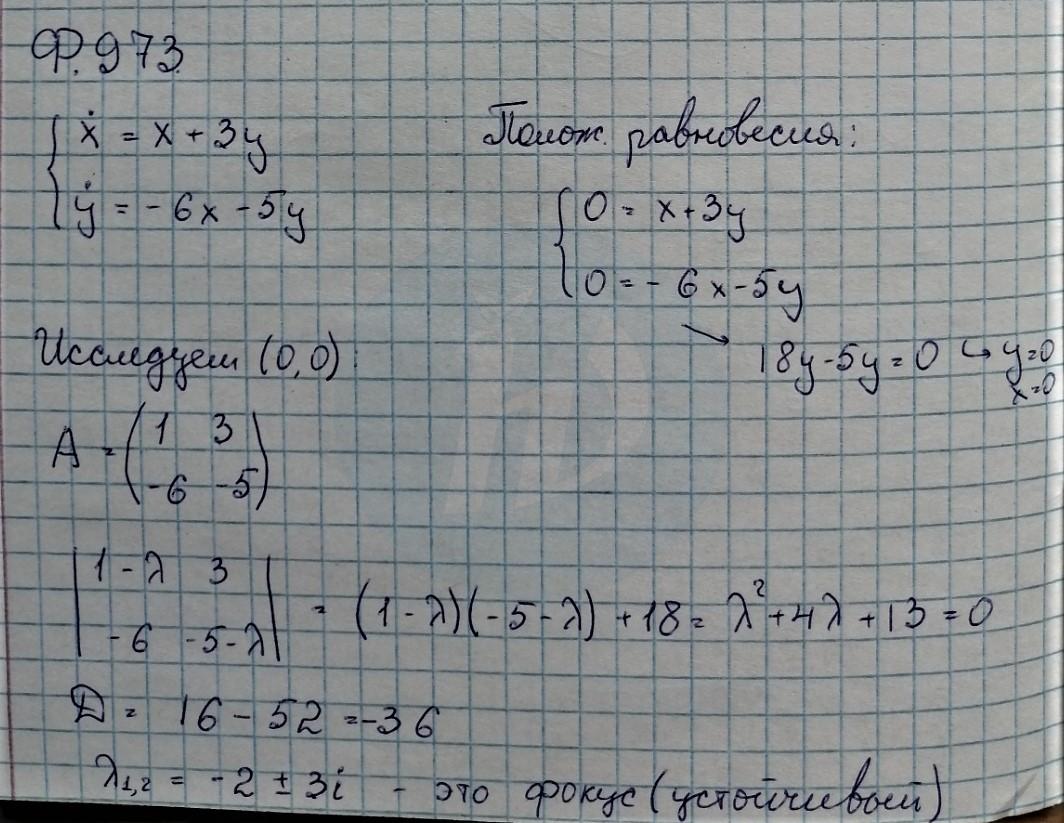 Ф. 973
{ ẋ = x + 3y
{ ẏ = -6x - 5y
Полож. равновесия:
{ 0 = x + 3y
{ 0 = - 6x - 5y
↘ 18y - 5y = 0 ↪ y = 0
x = 0
Исследуем (0,0):
A = ( 1 3
-6 -5 )
| 1 - λ 3
-6 -5 - λ | = (1 - λ)(-5 - λ) + 18 = λ² + 4λ + 13 = 0
D = 16 - 52 = -36
λ₁,₂ = -2 ± 3i - это фокус (устойчивый)